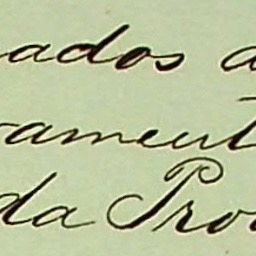 ados a
rament
da Pro